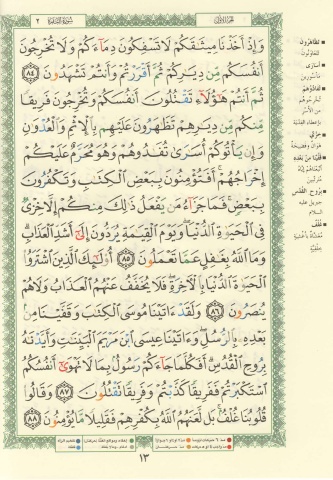 سُورَةُ البَقَرَة ٢
الجُزءُ الأوّل
وَإِذْ أَخَذْنَا مِيثَٰقَكُمْ لَا تَسْفِكُونَ دِمَآءَكُمْ وَلَا تُخْرِجُونَ
أَنفُسَكُم مِّن دِيَٰرِكُمْ ثُمَّ أَقْرَرْتُمْ وَأَنتُمْ تَشْهَدُونَ ٨٤
ثُمَّ أَنتُمْ هَٰٓؤُلَآءِ تَقْتُلُونَ أَنفُسَكُمْ وَتُخْرِجُونَ فَرِيقًا
مِّنكُم مِّن دِيَٰرِهِمْ تَظَٰهَرُونَ عَلَيْهِم بِٱلْإِثْمِ وَٱلْعُدْوَٰنِ
وَإِن يَأْتُوكُمْ أُسَٰرَىٰ تُفَٰدُوهُمْ وَهُوَ مُحَرَّمٌ عَلَيْكُمْ
إِخْرَاجُهُمْ ۚ أَفَتُؤْمِنُونَ بِبَعْضِ ٱلْكِتَٰبِ وَتَكْفُرُونَ
بِبَعْضٍ ۚ فَمَا جَزَآءُ مَن يَفْعَلُ ذَٰلِكَ مِنكُمْ إِلَّا خِزْىٌ
فِى ٱلْحَيَوٰةِ ٱلدُّنْيَا ۖ وَيَوْمَ ٱلْقِيَٰمَةِ يُرَدُّونَ إِلَىٰٓ أَشَدِّ ٱلْعَذَابِ ۗ
وَمَا ٱللَّهُ بِغَٰفِلٍ عَمَّا تَعْمَلُونَ ٨٥ أُو۟لَٰٓئِكَ ٱلَّذِينَ ٱشْتَرَوُا۟
ٱلْحَيَوٰةَ ٱلدُّنْيَا بِٱلْأَخِرَةِ ۖ فَلَا يُخَفَّفُ عَنْهُمُ ٱلْعَذَابُ وَلَا هُمْ
يُنصَرُونَ ٨٦ وَلَقَدْ ءَاتَيْنَا مُوسَى ٱلْكِتَٰبَ وَقَفَّيْنَا مِنۢ
بَعْدِهِۦ بِٱلرُّسُلِ ۖ وَءَاتَيْنَا عِيسَى ٱبْنَ مَرْيَمَ ٱلْبَيِّنَٰتِ وَأَيَّدْنَٰهُ
بِرُوحِ ٱلْقُدُسِ ۗ أَفَكُلَّمَا جَآءَكُمْ رَسُولٌۢ بِمَا لَا تَهْوَىٰٓ أَنفُسُكُمُ
ٱسْتَكْبَرْتُمْ فَفَرِيقًا كَذَّبْتُمْ وَفَرِيقًا تَقْتُلُونَ ٨٧ وَقَالُوا۟
قُلُوبُنَا غُلْفٌۢ ۚ بَل لَّعَنَهُمُ ٱللَّهُ بِكُفْرِهِمْ فَقَلِيلًا مَّا يُؤْمِنُونَ ٨٨
تظاهرون
تتعاونون
أسارى
مأسورين
تفادوهم
من الأسر
بإعطاء الفدية
خزي
هوان وفضيحة
قفينا من بعده
بروح القدس
جبريل عليه
السلام
غلف
١٣